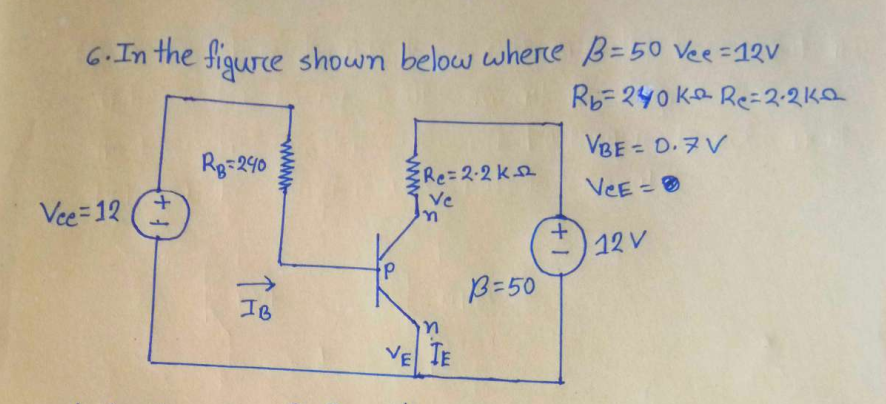 6. In the figure shown below where β=50 Vcc=12V
Rb=240 KΩ Rc=2.2KΩ
VBE = 0.7 V
VCE =
RB=240
Rc=2.2 KΩ
Vc
n
Vcc=12
+
-
+
-
12 V
P
β=50
IB
n
VE IE